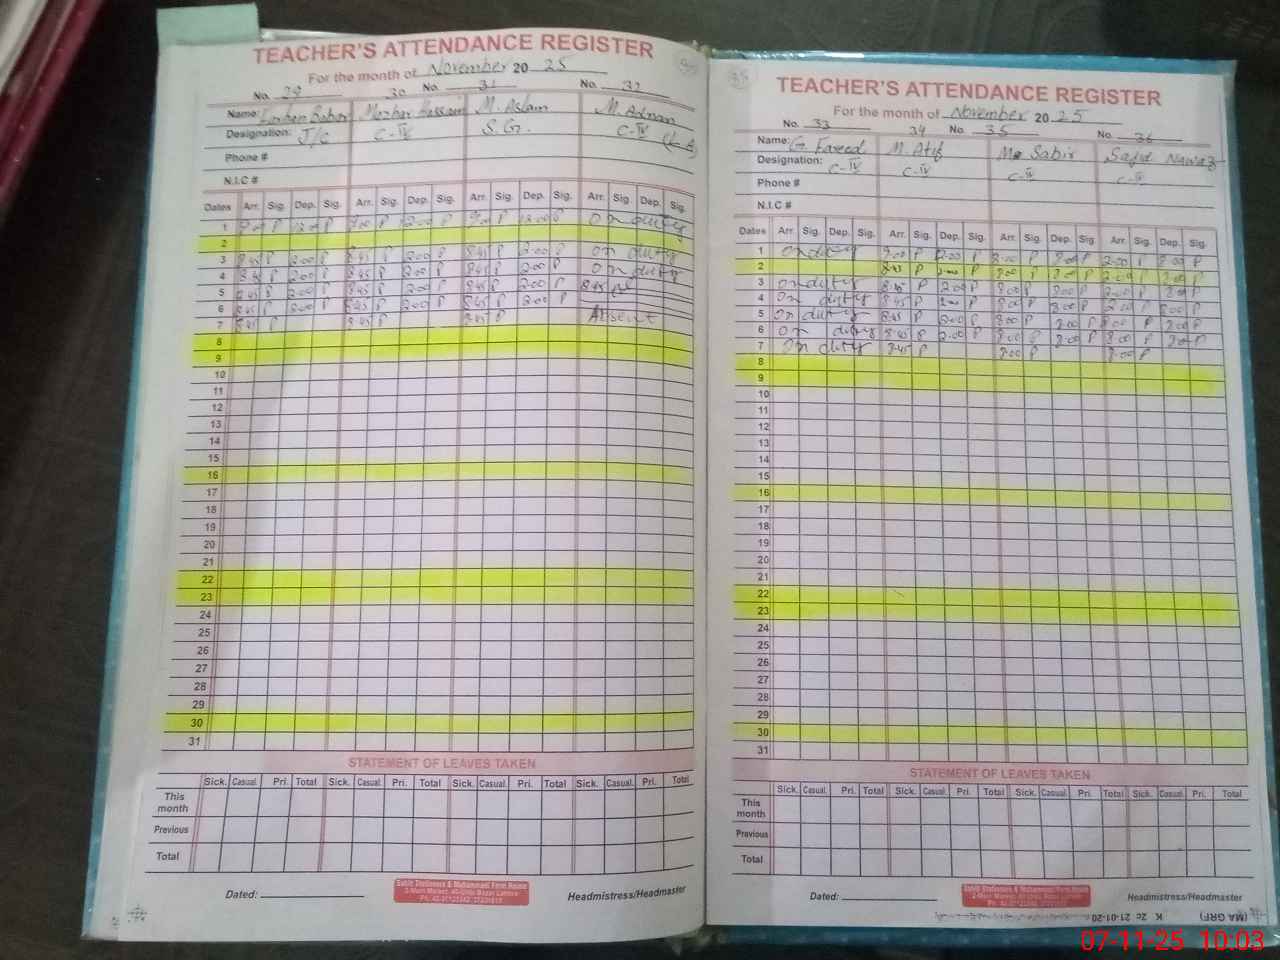 TEACHER'S ATTENDANCE REGISTER
For the month of November 20 25
No. 29 30 No. 31 No. 32
Name: Babar Mazhar Hassan M. Aslam M. Adnan
Designation: J/C C-IV S.G. C-IV
Phone #
N.I.C #
Dates Arr. Sig. Dep. Sig. Arr. Sig. Dep. Sig. Arr. Sig. Dep. Sig. Arr. Sig. Dep. Sig.
1 9:00 P 12:00 P 9:00 P 12:00 P 9:00 P 12:00 P On duty
2
3 8:45 P 2:00 P 8:45 P 2:00 P 8:45 P 2:00 P On duty
4 8:45 P 2:00 P 8:45 P 2:00 P 8:45 P 2:00 P On duty
5 8:45 P 2:00 P 8:45 P 2:00 P 8:45 P 2:00 P 8:45
6 8:45 P 2:00 P 8:45 P 2:00 P 8:45 P 2:00 P
7 8:45 P 8:45 P 8:45 P Absent
8
9
10
11
12
13
14
15
16
17
18
19
20
21
22
23
24
25
26
27
28
29
30
31
STATEMENT OF LEAVES TAKEN
Sick. Casual. Pri. Total Sick. Casual. Pri. Total Sick. Casual. Pri. Total Sick. Casual. Pri. Total
This month
Previous
Total
Dated:
Headmistress/Headmaster
TEACHER'S ATTENDANCE REGISTER
For the month of November 20 25
No. 33 34 No. 35 No. 36
Name: G. Fareed M. Atif M. Sabir Sajid Nawaz
Designation: C-IV C-IV C-IV C-IV
Phone #
N.I.C #
Dates Arr. Sig. Dep. Sig. Arr. Sig. Dep. Sig. Arr. Sig. Dep. Sig. Arr. Sig. Dep. Sig.
1 On duty 9:00 P 2:00 P 8:00 P 8:00 P 2:00 P 8:00 P
2 8:45 P 2:00 P 8:00 P 8:00 P 2:00 P 8:00 P
3 On duty 8:45 P 2:00 P 8:00 P 8:00 P 2:00 P 8:00 P
4 On duty 8:45 P 2:00 P 8:00 P 8:00 P 2:00 P 8:00 P
5 On duty 8:45 P 2:00 P 8:00 P 2:00 P 8:00 P 2:00 P
6 On duty 8:45 P 2:00 P 8:00 P 2:00 P 8:00 P 2:00 P
7 On duty 8:45 P 8:00 P 8:00 P
8
9
10
11
12
13
14
15
16
17
18
19
20
21
22
23
24
25
26
27
28
29
30
31
STATEMENT OF LEAVES TAKEN
Sick. Casual. Pri. Total Sick. Casual. Pri. Total Sick. Casual. Pri. Total Sick. Casual. Pri. Total
This month
Previous
Total
Dated:
Headmistress/Headmaster
07-11-25 10:03